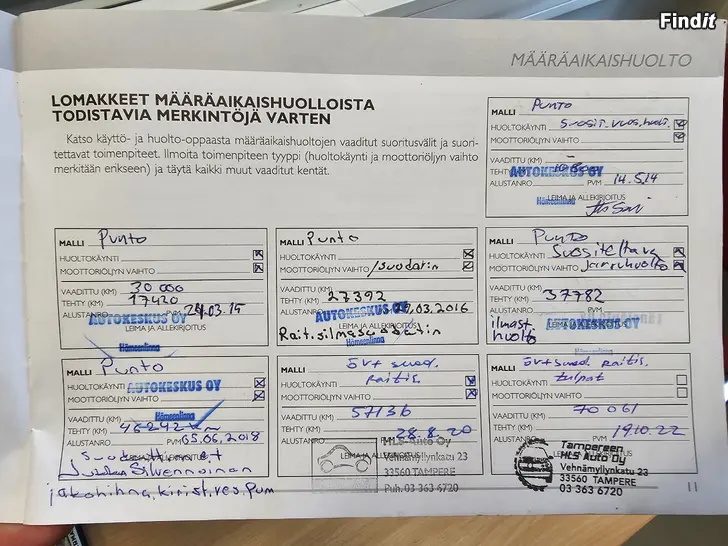 Findit
MÄÄRÄAIKAISHUOLTO
LOMAKKEET MÄÄRÄAIKAISHUOLLOISTA
TODISTAVIA MERKINTÖJÄ VARTEN
Katso käyttö- ja huolto-oppaasta määräaikaishuoltojen vaaditut suoritusvälit ja suori-
tettavat toimenpiteet. Ilmoita toimenpiteen tyyppi (huoltokäynti ja moottoriöljyn vaihto
merkitään erikseen) ja täytä kaikki muut vaaditut kentät.
MALLI Punto
HUOLTOKÄYNTI
MOOTTORIÖLJYN VAIHTO
VAADITTU (KM)
TEHTY (KM)
AUTOKESKUS OY
ALUSTANRO PVM 14.5.14
LEIMA JA ALLEKIRJOITUS
Hämeenlinna
MALLI Punto
HUOLTOKÄYNTI
MOOTTORIÖLJYN VAIHTO
VAADITTU (KM) 30 000
TEHTY (KM) 17420
ALUSTANRO PVM 24.03.15
AUTOKESKUS OY
LEIMA JA ALLEKIRJOITUS
Hämeenlinna
MALLI Punto
HUOLTOKÄYNTI
MOOTTORIÖLJYN VAIHTO /suodatin
VAADITTU (KM)
TEHTY (KM) 27392
ALUSTANRO .03.2016
AUTOKESKUS OY
Rait.silmasuodatin
Hämeenlinna
MALLI Punto
HUOLTOKÄYNTI Suositeltava
MOOTTORIÖLJYN VAIHTO jarruhuolto
VAADITTU (KM)
TEHTY (KM) 37782
ALUSTANRO PVM
ilmast.
huolto
AUTOKESKUS OY
MALLI Punto
HUOLTOKÄYNTI AUTOKESKUS OY
MOOTTORIÖLJYN VAIHTO
VAADITTU (KM) Hämeenlinna
TEHTY (KM) 46242
ALUSTANRO PVM 05.06.2018
Silvennoinen
jakohihna, kirist, ves.pum
MALLI öv+suod.
HUOLTOKÄYNTI raitis.
MOOTTORIÖLJYN VAIHTO
VAADITTU (KM) 57136
TEHTY (KM) 28.8.20
ALUSTANRO
MLS-Auto Oy
LEIMA JA ALLEKIRJOITUS
Vehnämyllynkatu 23
33560 TAMPERE
Puh. 03 363 6720
MALLI öv+suod. raitis.
HUOLTOKÄYNTI tulpat
MOOTTORIÖLJYN VAIHTO
VAADITTU (KM) 70 061
TEHTY (KM) 19.10.22
ALUSTANRO PVM
Tampereen
MLS Auto Oy
Vehnämyllynkatu 23
33560 TAMPERE
03 363 6720
11